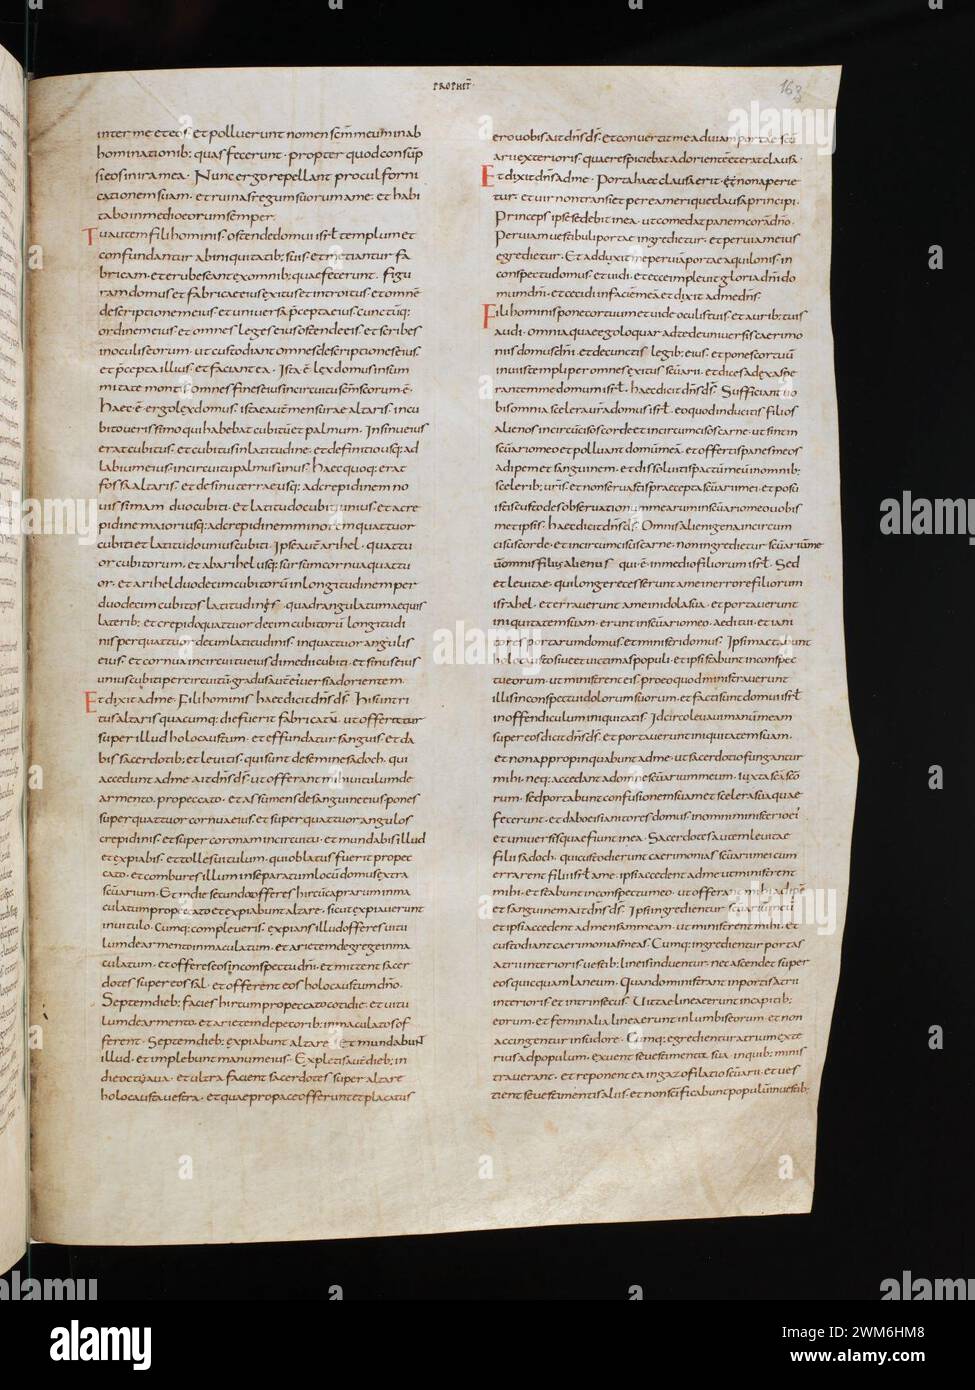 PROPHET
163
inter me et eos. et polluerunt nomen scm meum in ab
hominationib; quas fecerunt. propter quod consūp
si eos in ira mea. Nunc ergo repellant procul forni
cationem suam. et ruinas regum suorum a me. et habi
tabo in medio eorum semper.
Tu autem fili hominis. ostende domui isrl templum et
confundantur ab iniquitatib; suis. et metiantur fa
bricam. et erubescant ex omnib; quae fecerunt. figu
ram domus et fabricae eius. exitus et introitus. et omnē
descriptionem eius. et universa p̄cepta eius. cunctūq;
ordinem eius. et omnes leges eius ostende eis. et scribes
in oculis eorum. ut custodiant omnes descriptiones eius.
et p̄cepta illius. et faciant ea. Ista ē lex domus in sum
mitate montis. omnes fines eius in circuitu scm scorum ē.
Haec ē ergo lex domus. istae autē mensurae altaris. in cu
bito verissimo qui habebat cubitū et palmum. In sinu eius
erat cubitus. et cubitus in latitudine. et definitio usq; ad
labium eius. in circuitu palmus unus. haec quoq; erat
fossa altaris. et de sinu terrae usq; ad crepidinem no
vissimam duo cubiti. et latitudo cubiti unius. et a cre
pidine maiori usq; ad crepidinem minorem quattuor
cubiti et latitudo unius cubiti. Ipse autē arihel. quattu
or cubitorum. et ab arihel usq; sursum cornua quattu
or. et arihel duodecim cubitorū in longitudinem per
duodecim cubitos latitudinis. quadrangulatum aequis
laterib; et crepido quattuordecim cubitorū longitudi
nis per quattuordecim latitudinis. in quattuor angulis
eius. et corona in circuitu eius dimedii cubiti. et sinus eius
unius cubiti per circuitū. gradus autē eius versi ad orientem.
Et dixit ad me. Fili hominis haec dicit dns ds. Hi sunt ri
tus altaris quacumq; die fuerit fabricatū. ut offeratur
super illud holocaustum. et effundatur sanguis. et da
bis sacerdotib; et levitis. qui sunt de semine sadoch. qui
accedunt ad me ait dns ds. ut offerant mihi vitulum de
armento. pro peccato. et assumens de sanguine eius pones
super quattuor cornua eius. et super quattuor angulos
crepidinis. et super coronam in circuitu. et mundabis illud
et expiabis. et tolles vitulum. qui oblatus fuerit pro pec
cato. et combures illum in separato loco domus extra
scuarium. Et in die secundo offeres hircū caprarum inma
culatum pro peccato et expiabunt altare. sicut expiaverunt
in vitulo. Cumq; compleveris. expians illud offeres vitu
lum de armento inmaculatum. et arietem de grege inma
culatum. et offeres eos in conspectu dni. et mittent sacer
dotes super eos sal. et offerent eos holocaustum dno.
Septem dieb; facies hircum pro peccato cotidie. et vitu
lum de armento. et arietem de pecorib; inmaculatos of
ferent. Septem dieb; expiabunt altare. et mundabunt
illud. et implebunt manum eius. Expletis autē dieb; in
die octava. et ultra facient sacerdotes super altare
holocausta vestra. et quae pro pace offerunt et placatus
ero vobis ait dns ds. et convertit me ad viam portae scu
arii exterioris. quae respiciebat ad orientē et erat clausa.
Et dixit dns ad me. Porta haec clausa erit. et non aperie
tur. et vir non transiet per eam eritque clausa principi.
Princeps ipse sedebit in ea. ut comedat panem coram dno.
Per viam vestibuli portae ingredietur. et per viam eius
egredietur. Et adduxit me per viam portae aquilonis. in
conspectu domus. et vidi. et ecce implevit gloria dni do
mum dni. et cecidi in faciem meā et dixit ad me dns.
Fili hominis pone cor tuum et vide oculis tuis. et aurib; tuis
audi. omnia quae ego loquar ad te de universis caerimo
niis domus dni. et de cunctis legib; eius. et pones cor tuū
in viis templi per omnes exitus scuarii. et dices ad exaspe
rantem me domum isrl. haec dicit dns ds. Sufficiant vo
bis omnia scelera vra domus isrl. eo quod inducitis filios
alienos incircūcisos corde et incircumcisos carne. ut sint in
scuario meo et polluant domū meā. et offertis panes meos
adipem et sanguinem. et dissolvitis pactū meū in omnib;
scelerib; vris. et non servastis praecepta scuarii mei. et posu
istis custodes observationum mearum in scuario meo vobis
met ipsis. haec dicit dns ds. Omnis alienigena incircum
cisus corde. et incircumcisus carne. non ingredietur scuariū me
ū omnis filius alienus qui ē in medio filiorum isrl. Sed
et levitae. qui longe recesserunt a me in errore filiorum
israhel. et erraverunt a me in idola sua. et portaverunt
iniquitatem suam. erunt in scuario meo. aeditui. et iani
tores portarum domus. et ministri domus. Ipsi mactabunt
holocaustosue et victimas populi. et ipsi stabunt in conspec
tu eorum. ut ministrent eis. pro eo quod ministraverunt
illis in conspectu idolorum suorum. et facti sunt domui isrl
in offendiculum iniquitatis. Idcirco levavi manum meam
super eos dicit dns ds. et portaverunt iniquitatem suam.
et non appropinquabunt ad me. ut sacerdotio fungantur
mihi. neq; accedant ad omne scuarium meum. iuxta sca sco
rum. sed portabunt confusionem suam et scelera sua quae
fecerunt. et dabo eos ianitores domus. in omni ministerio ei
et universis quae fiunt in ea. Sacerdotes autem levitae
filii sadoch. qui custodierunt caerimonias scuarii mei cum
errarent filii isrl a me. ipsi accedent ad me ut ministrent
mihi. et stabunt in conspectu meo. ut offerant mihi adipē
et sanguinem ait dns ds. Ipsi ingredientur scuariū meū
et ipsi accedent ad mensam meam. ut ministrent mihi. et
custodiant caerimonias meas. Cumq; ingredientur portas
atrii interioris. vestib; lineis induentur. nec ascendet super
eos quicquam laneum. Quando ministrant in portis atrii
interioris et intrinsecus. Vittae lineae erunt in capitib;
eorum. et feminalia linea erunt in lumbis eorum. et non
accingentur in sudore. Cumq; egredientur atrium exte
rius ad populum. exuent se vestimentis suis in quib; minis
traverant. et reponent ea in gazofilatio scuarii. et ves
tient se vestimentis aliis. et non scificabunt populū in vestib;
alamy
Image ID: 2WM6HM8
www.alamy.com